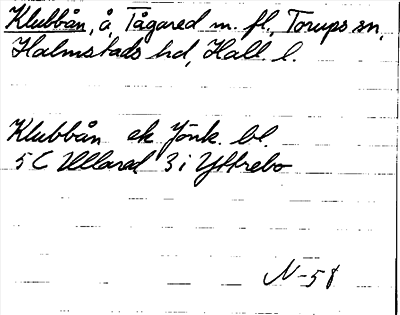 Klubbån, å, Tågared m. fl., Torups sn,
Halmstads hd, Hall. l.
Klubbån ek. Jönk. bl.
5 C Ullared 3 i Yttrebo
N-58